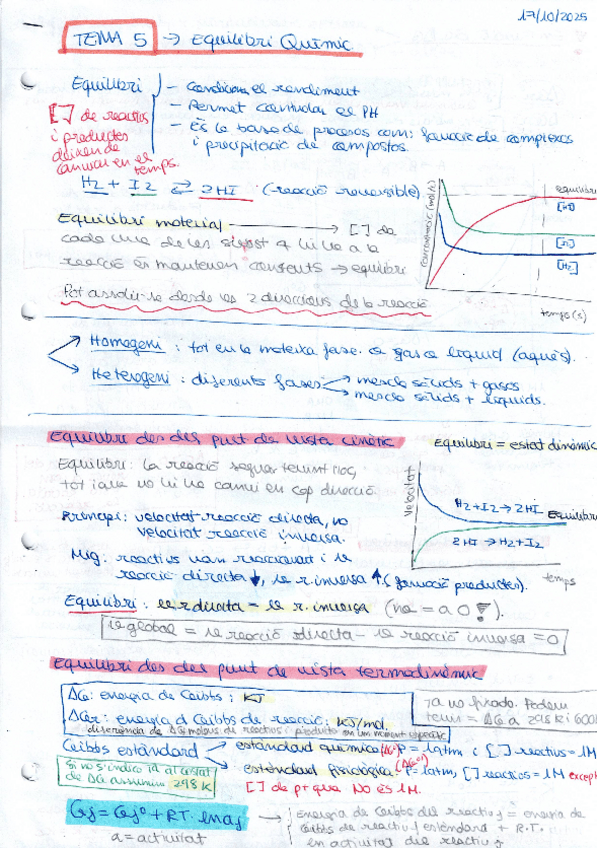 17/10/2025
TEMA 5 → Equilibri Químic.
Equilibri
- Condiciona el rendiment
- Permet calcular el PH
- És la base de processos com: formació de complexos
i precipitació de compostos.
[ ] de reactius
i productes
deixen de
canviar en el
temps.
H2 + I2 ⇄ 2HI (reacció reversible)
Equilibri material → [ ] de
cada una de les subst q hi ha a la
reacció es mantenen constants → equilibri
Pot assolir-se desde les 2 direccions de la reacció
concentració (mol/L)
equilibri
[HI]
[I2]
[H2]
temps (s)
Homogeni : tot en la mateixa fase. o gas o líquid (aquós).
Heterogeni : diferents fases
mescla sòlids + gasos
mescla sòlids + líquids.
Equilibri des del punt de vista cinètic
Equilibri = estat dinàmic
Equilibri: la reacció segueix tenint lloc,
tot i que no hi ha canvi en cap direcció.
Principi: velocitat reacció directa, no
velocitat reacció inversa.
Mig: reactius van reaccionant i la
reacció directa ↓, la r. inversa ↑ (formació productes).
Velocitat
H2 + I2 → 2HI
Equilibri
2HI → H2 + I2
temps
Equilibri : la r directa = la r. inversa (no = a 0!).
la global = la reacció directa - la reacció inversa = 0
Equilibri des del punt de vista termodinàmic
ΔG: energia de Gibbs ; KJ
ΔGr: energia d Gibbs de reacció; KJ/mol.
diferència de ΔG molars de reactius i producte en un moment específic
Tª no fixada. Podem
tenir = ΔG a 298 K i 600K
Gibbs estàndard
estàndard químic (ΔG° P = 1 atm i [ ] reactius = 1M
estàndard fisiològic (ΔG°') P = 1 atm, [ ] reactius = 1M excepte
[ ] de p+ que NO és 1M.
Si no s'indica Tª al costat
de ΔG assumim 298 K
Gj = Gj° + RT · ln aj
a = activitat
Energia de Gibbs del reactiu j = energia de
Gibbs de reactiu j estàndard + R.T.
ln activitat del reactiu j